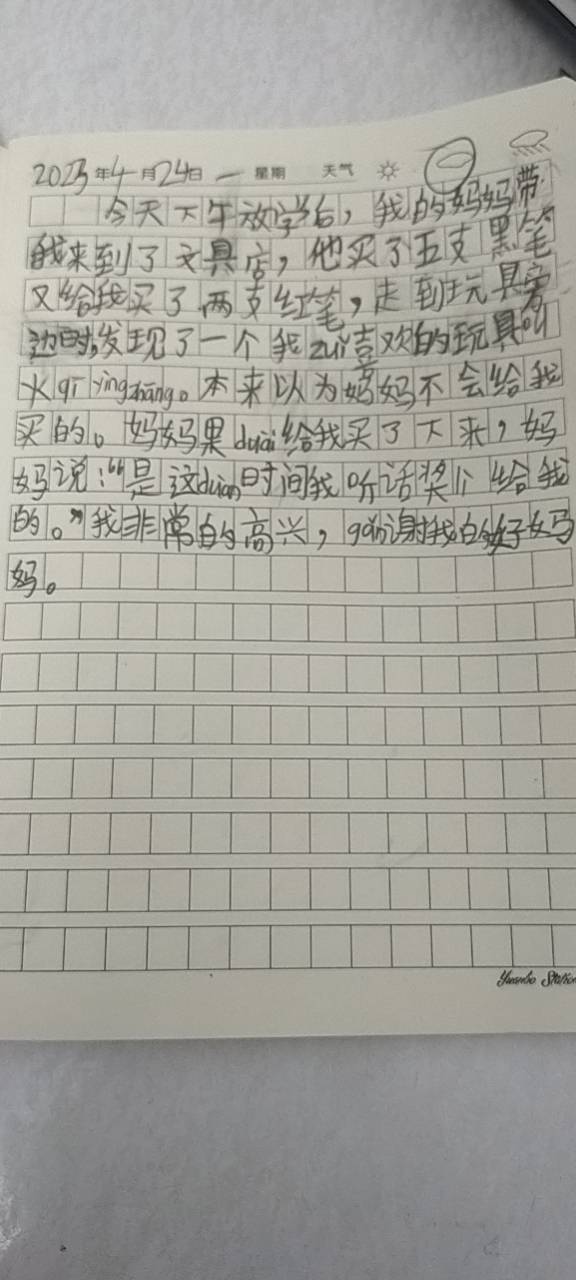 2023年4月24日 一 星期 天气
今天下午放学后，我的妈妈带
我来到了文具店，他买了五支黑笔
又给我买了两支红笔，走到玩具旁
边时，发现了一个我zuì喜欢的玩具叫
火qī yīng zhāng。本来以为妈妈不会给我
买的。妈妈果duàì给我买了下来，妈
妈说：“是这duàn时间我听话奖个给我
的。”我非常的高兴，gǎn谢我的好妈
妈。